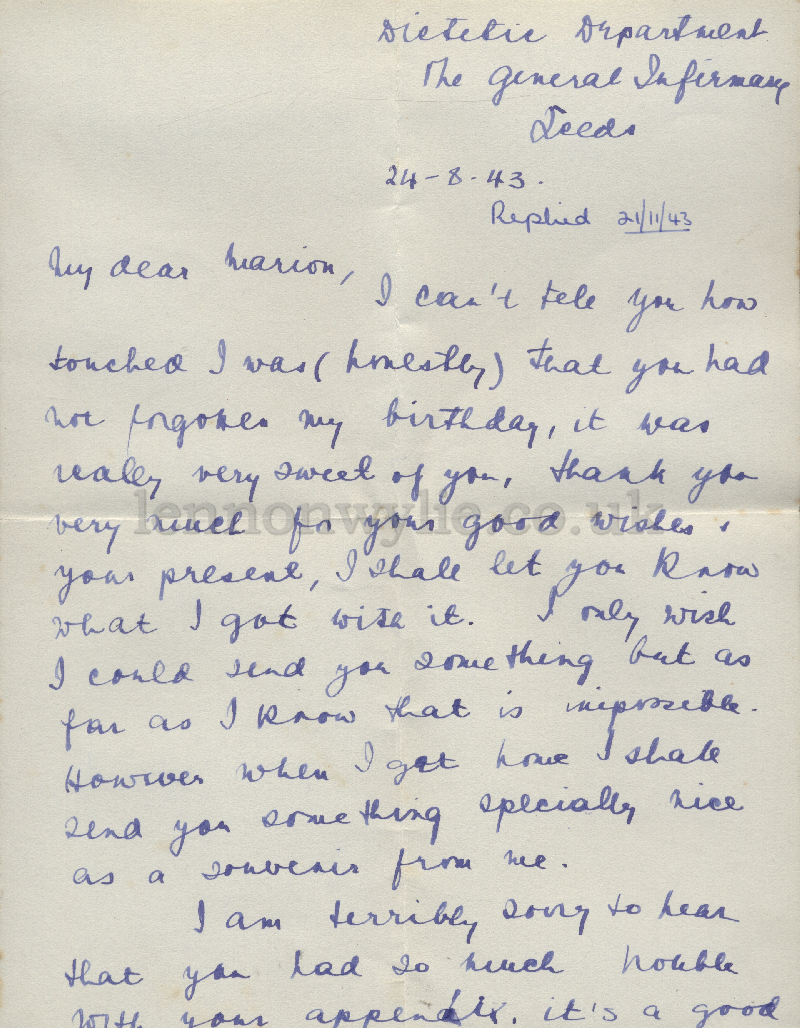 Dietetic Department
The General Infirmary
Leeds
24-8-43.
Replied 21/11/43
My dear Marion,
I can't tell you how
touched I was (honestly) that you had
not forgotten my birthday, it was
really very sweet of you, thank you
very much for your good wishes &
your present, I shall let you know
what I got with it. I only wish
I could send you something but as
far as I know that is impossible.
However when I get home I shall
send you something specially nice
as a souvenir from me.
I am terribly sorry to hear
that you had so much trouble
with your appendix, it's a good
lennonwylie.co.uk